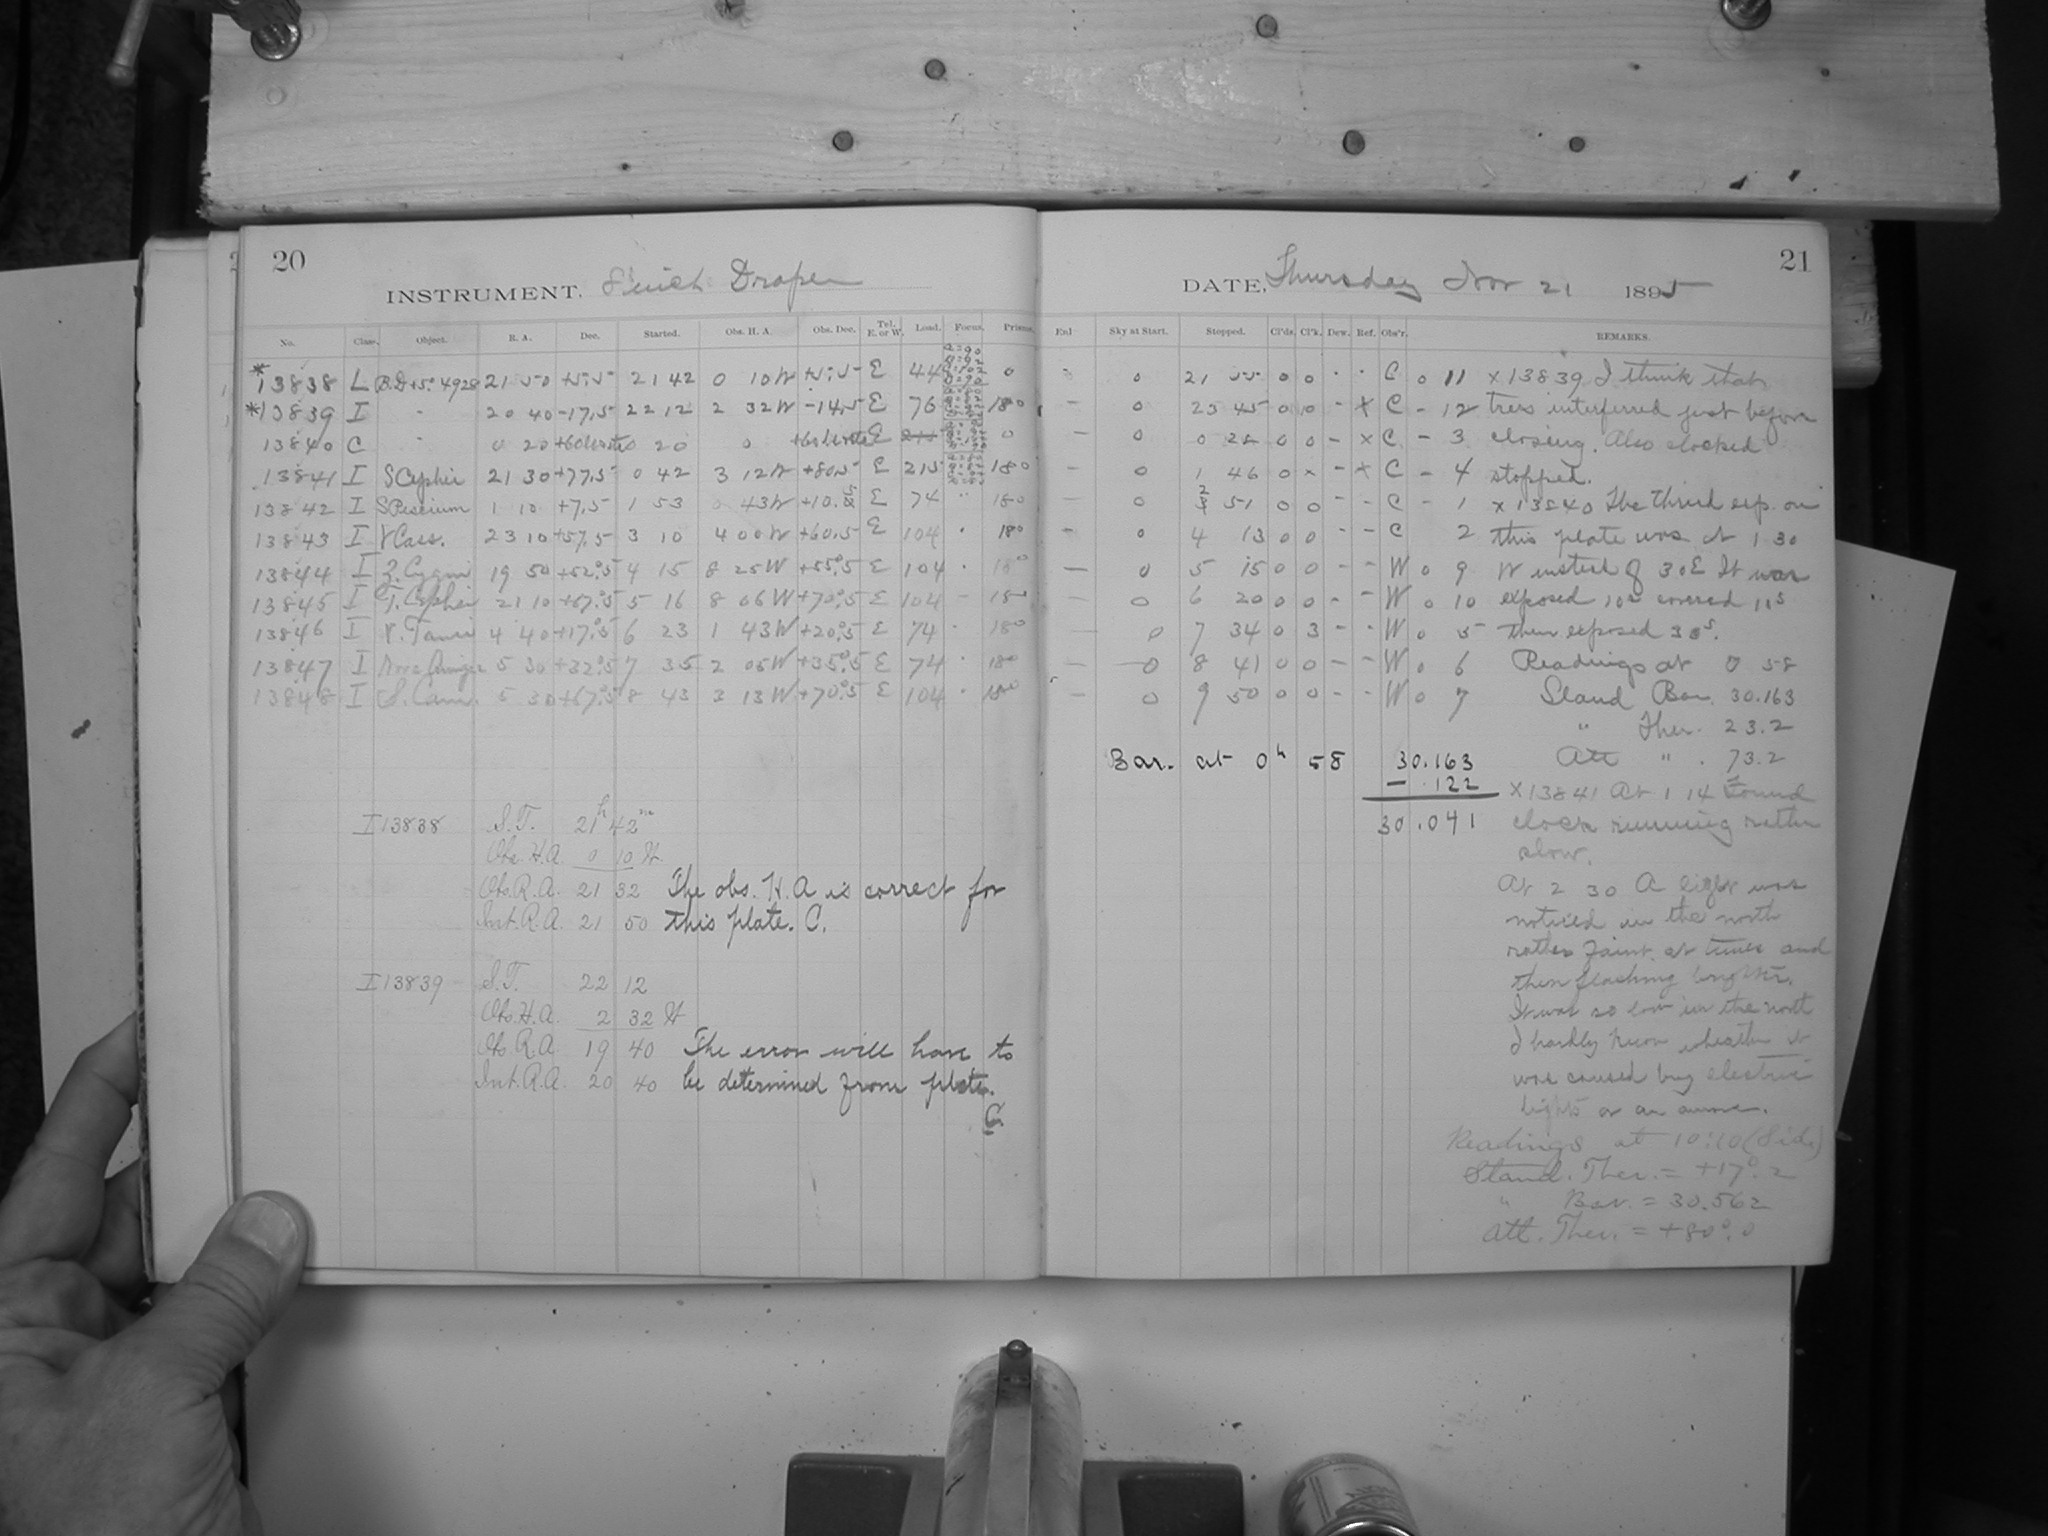 20
INSTRUMENT. 8 inch Draper
No. Class. Object. R. A. Dec. Started. Obs. H. A. Obs. Dec. Tel. E. or W. Load. Focus. Prisms.
*13838 L B.D+5° 4928 21 50 +5.5 21 42 0 10W +5.5 E 44 0
*13839 I - 20 40 -17.5 22 12 2 32W -14.5 E 76 180
13840 C 0 20 +60 0 20 0 +60 E 0
13841 I S Cephei 21 30 +77.5 0 42 3 12W +80.5 E 215 180
13842 I S Piscium 1 10 +7.5 1 53 0 43W +10.5 E 74 " 180
13843 I V Cass. 23 10 +57.5 3 10 4 00W +60.5 E 104 180
13844 I Z. Cygni 19 50 +52°.5 4 15 8 25W +55°.5 E 104 180
13845 I T. Cephei 21 10 +67°.5 5 16 8 06W +70°.5 E 104 - 180
13846 I V. Tauri 4 40 +17°.5 6 23 1 43W +20°.5 E 74 180
13847 I Nova Aurigae 5 30 +32°.5 7 35 2 05W +35°.5 E 74 180
13848 I S. Cam. 5 30 +67°.5 8 43 3 13W +70°.5 E 104 180
I 13838 S.T. 21h 42m
Obs. H.A. 0 10 W.
Obs. R.A. 21 32 The obs. H.A is correct for
Int. R.A. 21 50 this plate. C.
I 13839 S.T. 22 12
Obs. H.A. 2 32 W
Obs. R.A. 19 40 The error will have to
Int. R.A. 20 40 be determined from plate.
C
21
DATE, Thursday Nov 21 1895
Enl Sky at Start. Stopped. Cl'ds. Cl'k. Dew. Ref. Obs'r. REMARKS.
- 0 21 55 0 0 - - C 0 11 x 13839 I think that
- 0 23 45 0 10 - x C - 12 trees interferred just before
- 0 0 28 0 0 - x C - 3 closing. Also clocked
- 0 1 46 0 x - x C - 4 stopped.
- 0 2 51 0 0 - - C - 1 x 13840 The third exp. on
0 4 13 0 0 - - C 2 this plate was at 1 30
- 0 5 15 0 0 - - W 0 9 W instead of 30E It was
- 0 6 20 0 0 - - W 0 10 exposed 10s covered 11s
- 0 7 34 0 3 - - W 0 5 then exposed 30s.
- 0 8 41 0 0 - - W 0 6 Readings at 0 58
- 0 9 50 0 0 - - W 0 7 Stand Bar. 30.163
" Ther. 23.2
Bar. at 0h 58 30.163 Att " . 73.2
- .122 x 13841 At 1 14 Found
30.041 clock running rather
slow.
At 2 30 A light was
noticed in the north
rather faint at times and
then flashing brighter.
It was so low in the north
I hardly know whether it
was caused by electric
lights or an aurora.
Readings at 10:10 (Sid.)
Stand. Ther. = +17°.2
" Bar. = 30.562
Att. Ther. = +80°.0